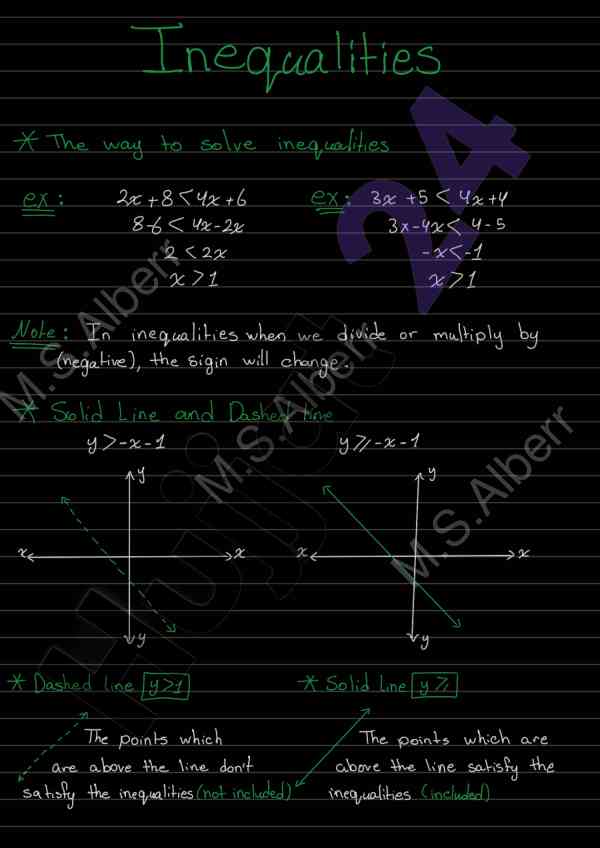 Inequalities
* The way to solve inequalities
ex: 2x + 8 < 4x + 6
8-6 < 4x - 2x
2 < 2x
x > 1
ex: 3x + 5 < 4x + 4
3x - 4x < 4 - 5
-x < -1
x > 1
Note: In inequalities when we divide or multiply by
(negative), the sigin will change.
* Solid Line and Dashed line
y > -x - 1
y ⩾ -x - 1
y
x x
y
y
x x
y
* Dashed line y > 1
The points which
are above the line don't
satisfy the inequalities (not included)
* Solid line y ⩾
The points which are
above the line satisfy the
inequalities (included)
24
Hujjat
M.S.Alberr
M.S.Alberr
M.S.Alberr